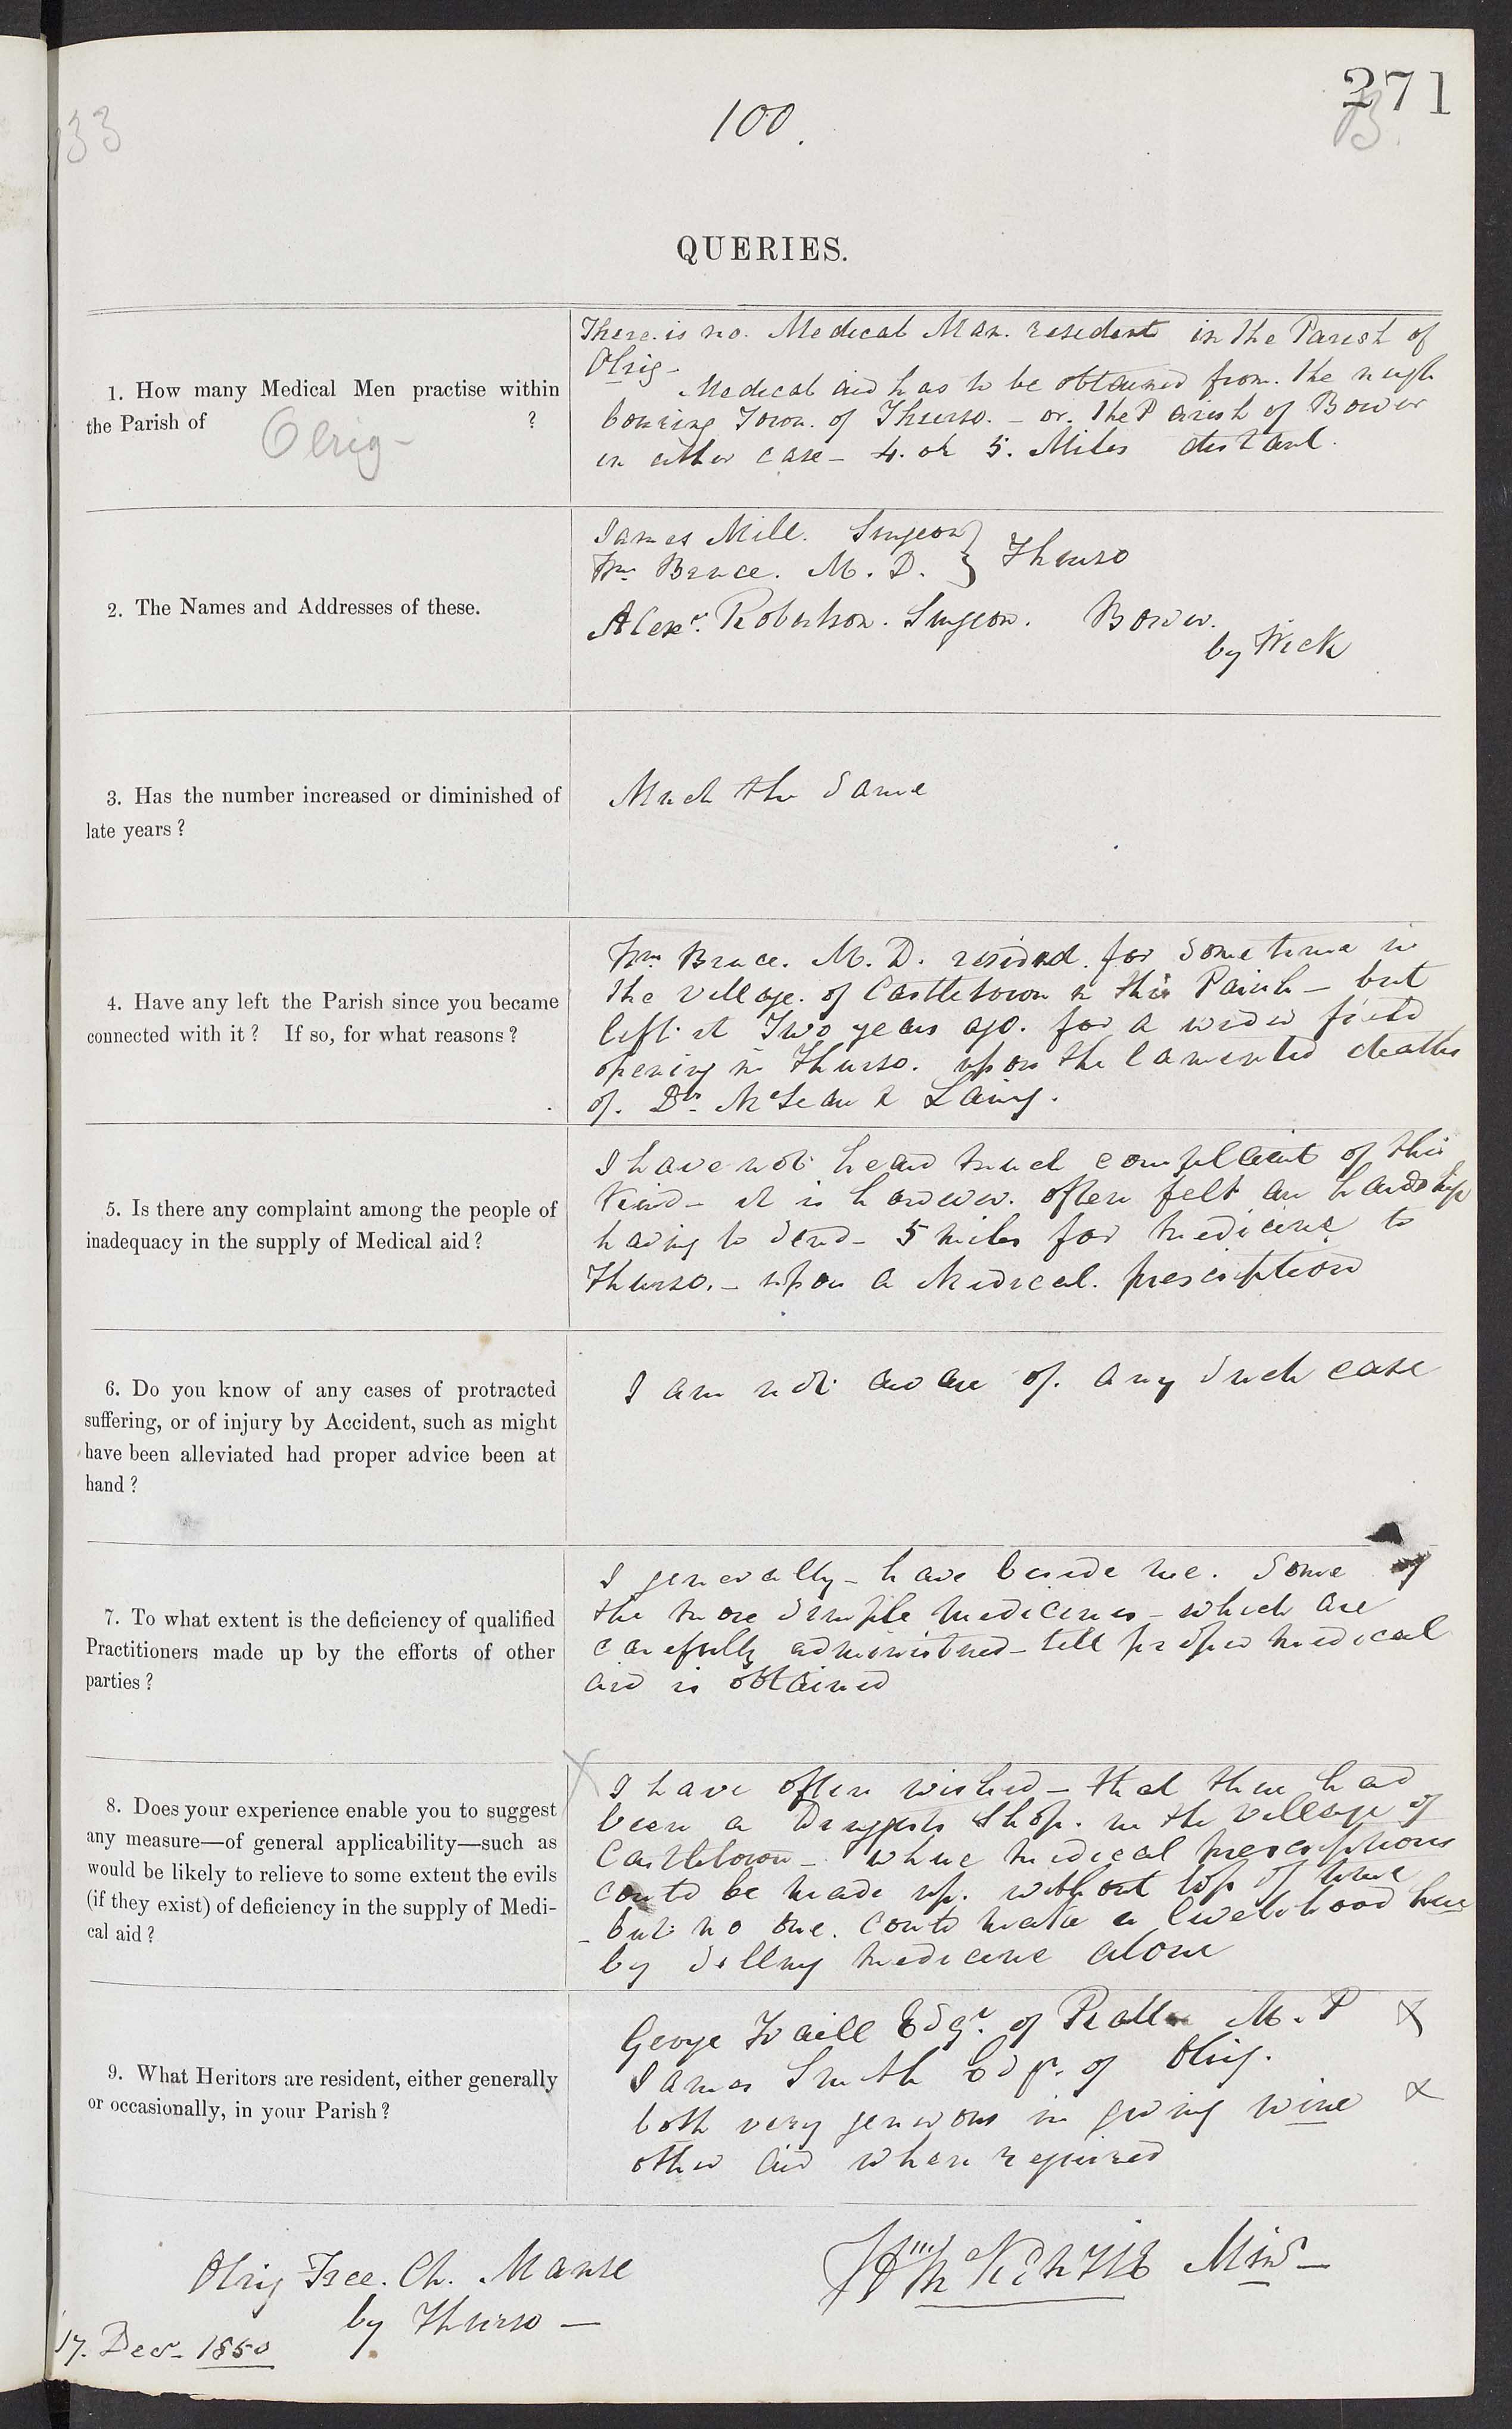 271
33
100.
B.
QUERIES.
1. How many Medical Men practise within
the Parish of Olrig- ?
There is no. Medical Man. resident in the Parish of
Olrig-
Medical aid has to be obtained from. the neigh
bouring Town. of Thurso. - or. the Parish of Bower
in either case - 4. or 5. Miles distant.
2. The Names and Addresses of these.
James Mill. Surgeon } Thurso
Wm. Bruce. M. D. }
Alexr. Robertson. Surgeon. Bower.
by Wick
3. Has the number increased or diminished of
late years?
Much the same
4. Have any left the Parish since you became
connected with it? If so, for what reasons?
Wm. Bruce. M. D. resided. for sometime in
the village. of Castletown in this Parish - but
left it Two years ago. for a wider field
opening in Thurso. upon the lamented deaths
of. Drs. & Laing.
5. Is there any complaint among the people of
inadequacy in the supply of Medical aid?
I have not heard much complaint of this
kind - it is however. often felt an hardship
having to send - 5 miles for medicine to
Thurso. - upon a Medical. prescription
6. Do you know of any cases of protracted
suffering, or of injury by Accident, such as might
have been alleviated had proper advice been at
hand?
I am not aware of. any such case
7. To what extent is the deficiency of qualified
Practitioners made up by the efforts of other
parties?
I generally - have beside me. some of
the more simple medicines - which are
carefully administered - till proper medical
aid is obtained
8. Does your experience enable you to suggest
any measure—of general applicability—such as
would be likely to relieve to some extent the evils
(if they exist) of deficiency in the supply of Medi-
cal aid?
X I have often wished - that there had
been a Druggists shop. in the village of
Castletown - where medical prescriptions
could be made up. without loss of time
- but no one. could make a livelihood here
by selling medicine alone
9. What Heritors are resident, either generally
or occasionally, in your Parish?
George Traill Esqr. of Ratter M. P X
James Smith Esqr. of Olrig.
both very generous in giving wine X
other aid when required
Olrig Free. Ch. Manse
by Thurso —
17. Decr. 1850
Wm McKenzie Minr —